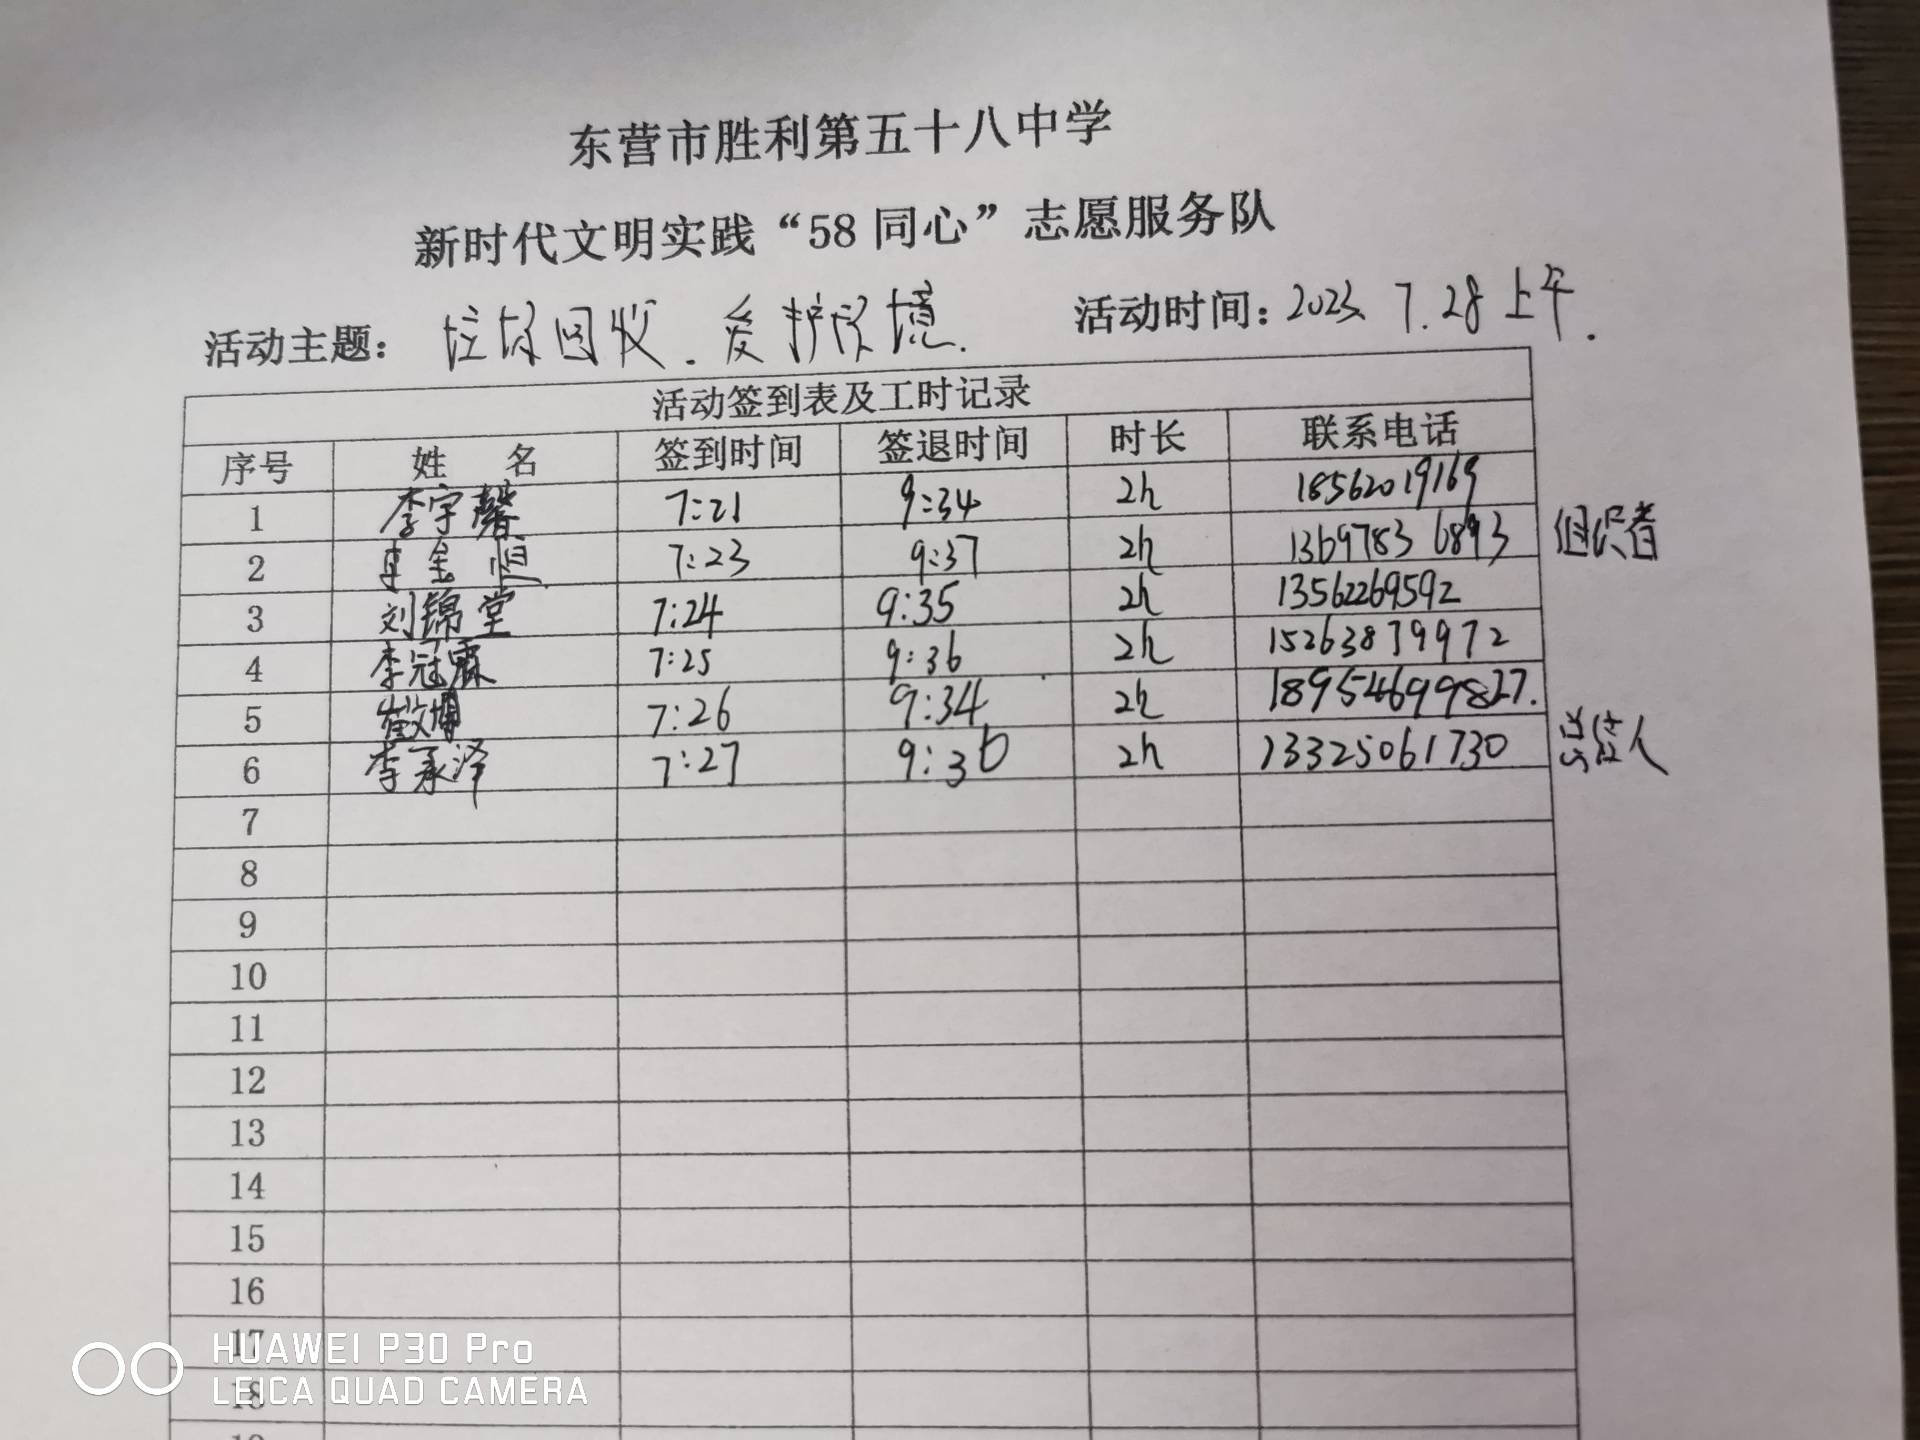 东营市胜利第五十八中学
新时代文明实践“58 同心”志愿服务队
活动主题: 垃圾回收.爱护环境. 活动时间: 2023 7.28 上午.
活动签到表及工时记录
序号 姓 名 签到时间 签退时间 时长 联系电话
1 李宇馨 7:21 9:34 2h 18562019169
2 7:23 9:37 2h 13697836893 组织者
3 刘锦堂 7:24 9:35 2h 13562269592
4 李冠霖 7:25 9:36 2h 15263879972
5 7:26 9:34 2h 18954699827.
6 李承泽 7:27 9:36 2h 13325061730 总结人
7
8
9
10
11
12
13
14
15
16
17
18
HUAWEI P30 Pro
LEICA QUAD CAMERA